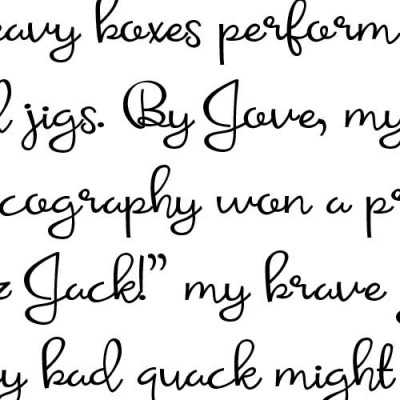 eavy boxes perform
jigs. By Jove, my
cography won a p
z Jack!” my brave
y bad quack might